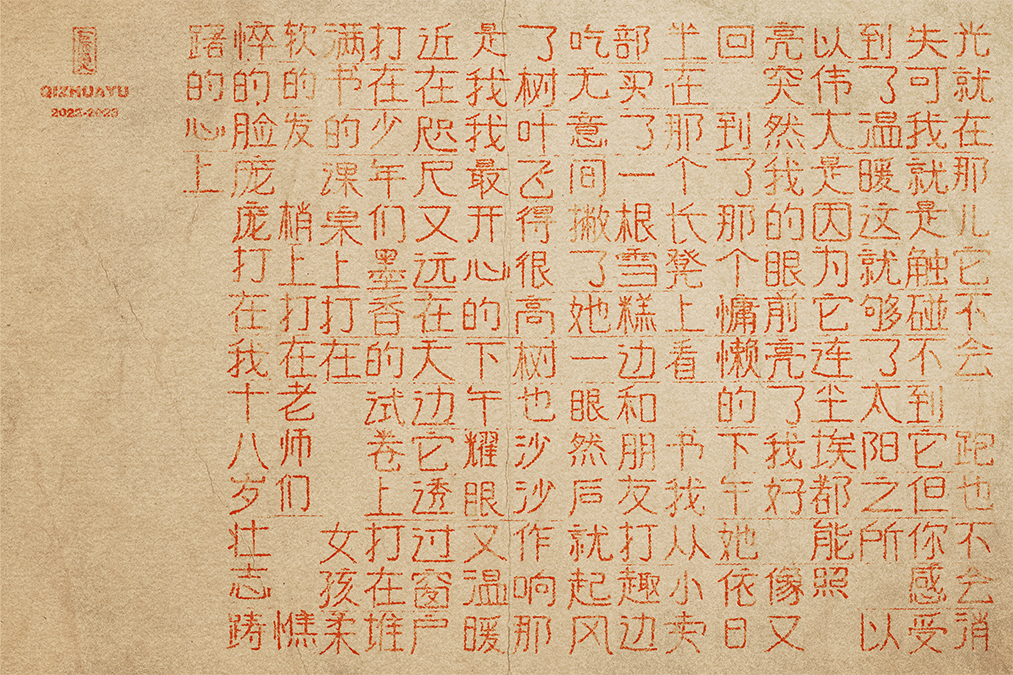 光就在那儿它不会 跑也不会消
失可我就是触碰不到它但你感受
到了温暖这就够了太阳之所 以
以伟大是因为它连尘埃都能照
亮突然我的眼前亮了我好 像又
回 到了那个慵懒的下午她依日
坐在那个长凳上看 书我从小卖
部买了一根雪糕边和朋友打趣边
吃无意间撇了她一眼然后就起风
了树叶飞得很高树也沙沙作响那
是我我最开心的下午耀眼又温暖
近在咫尺又远在天边它透过窗户
打在少年们墨香的试卷上打在堆
满书的课桌上打在 女孩柔
软的发 梢上打在老师们 憔
悴的脸庞庞打在我十八岁壮志踌
躇的心上
QIZHUAYU
2022-2023